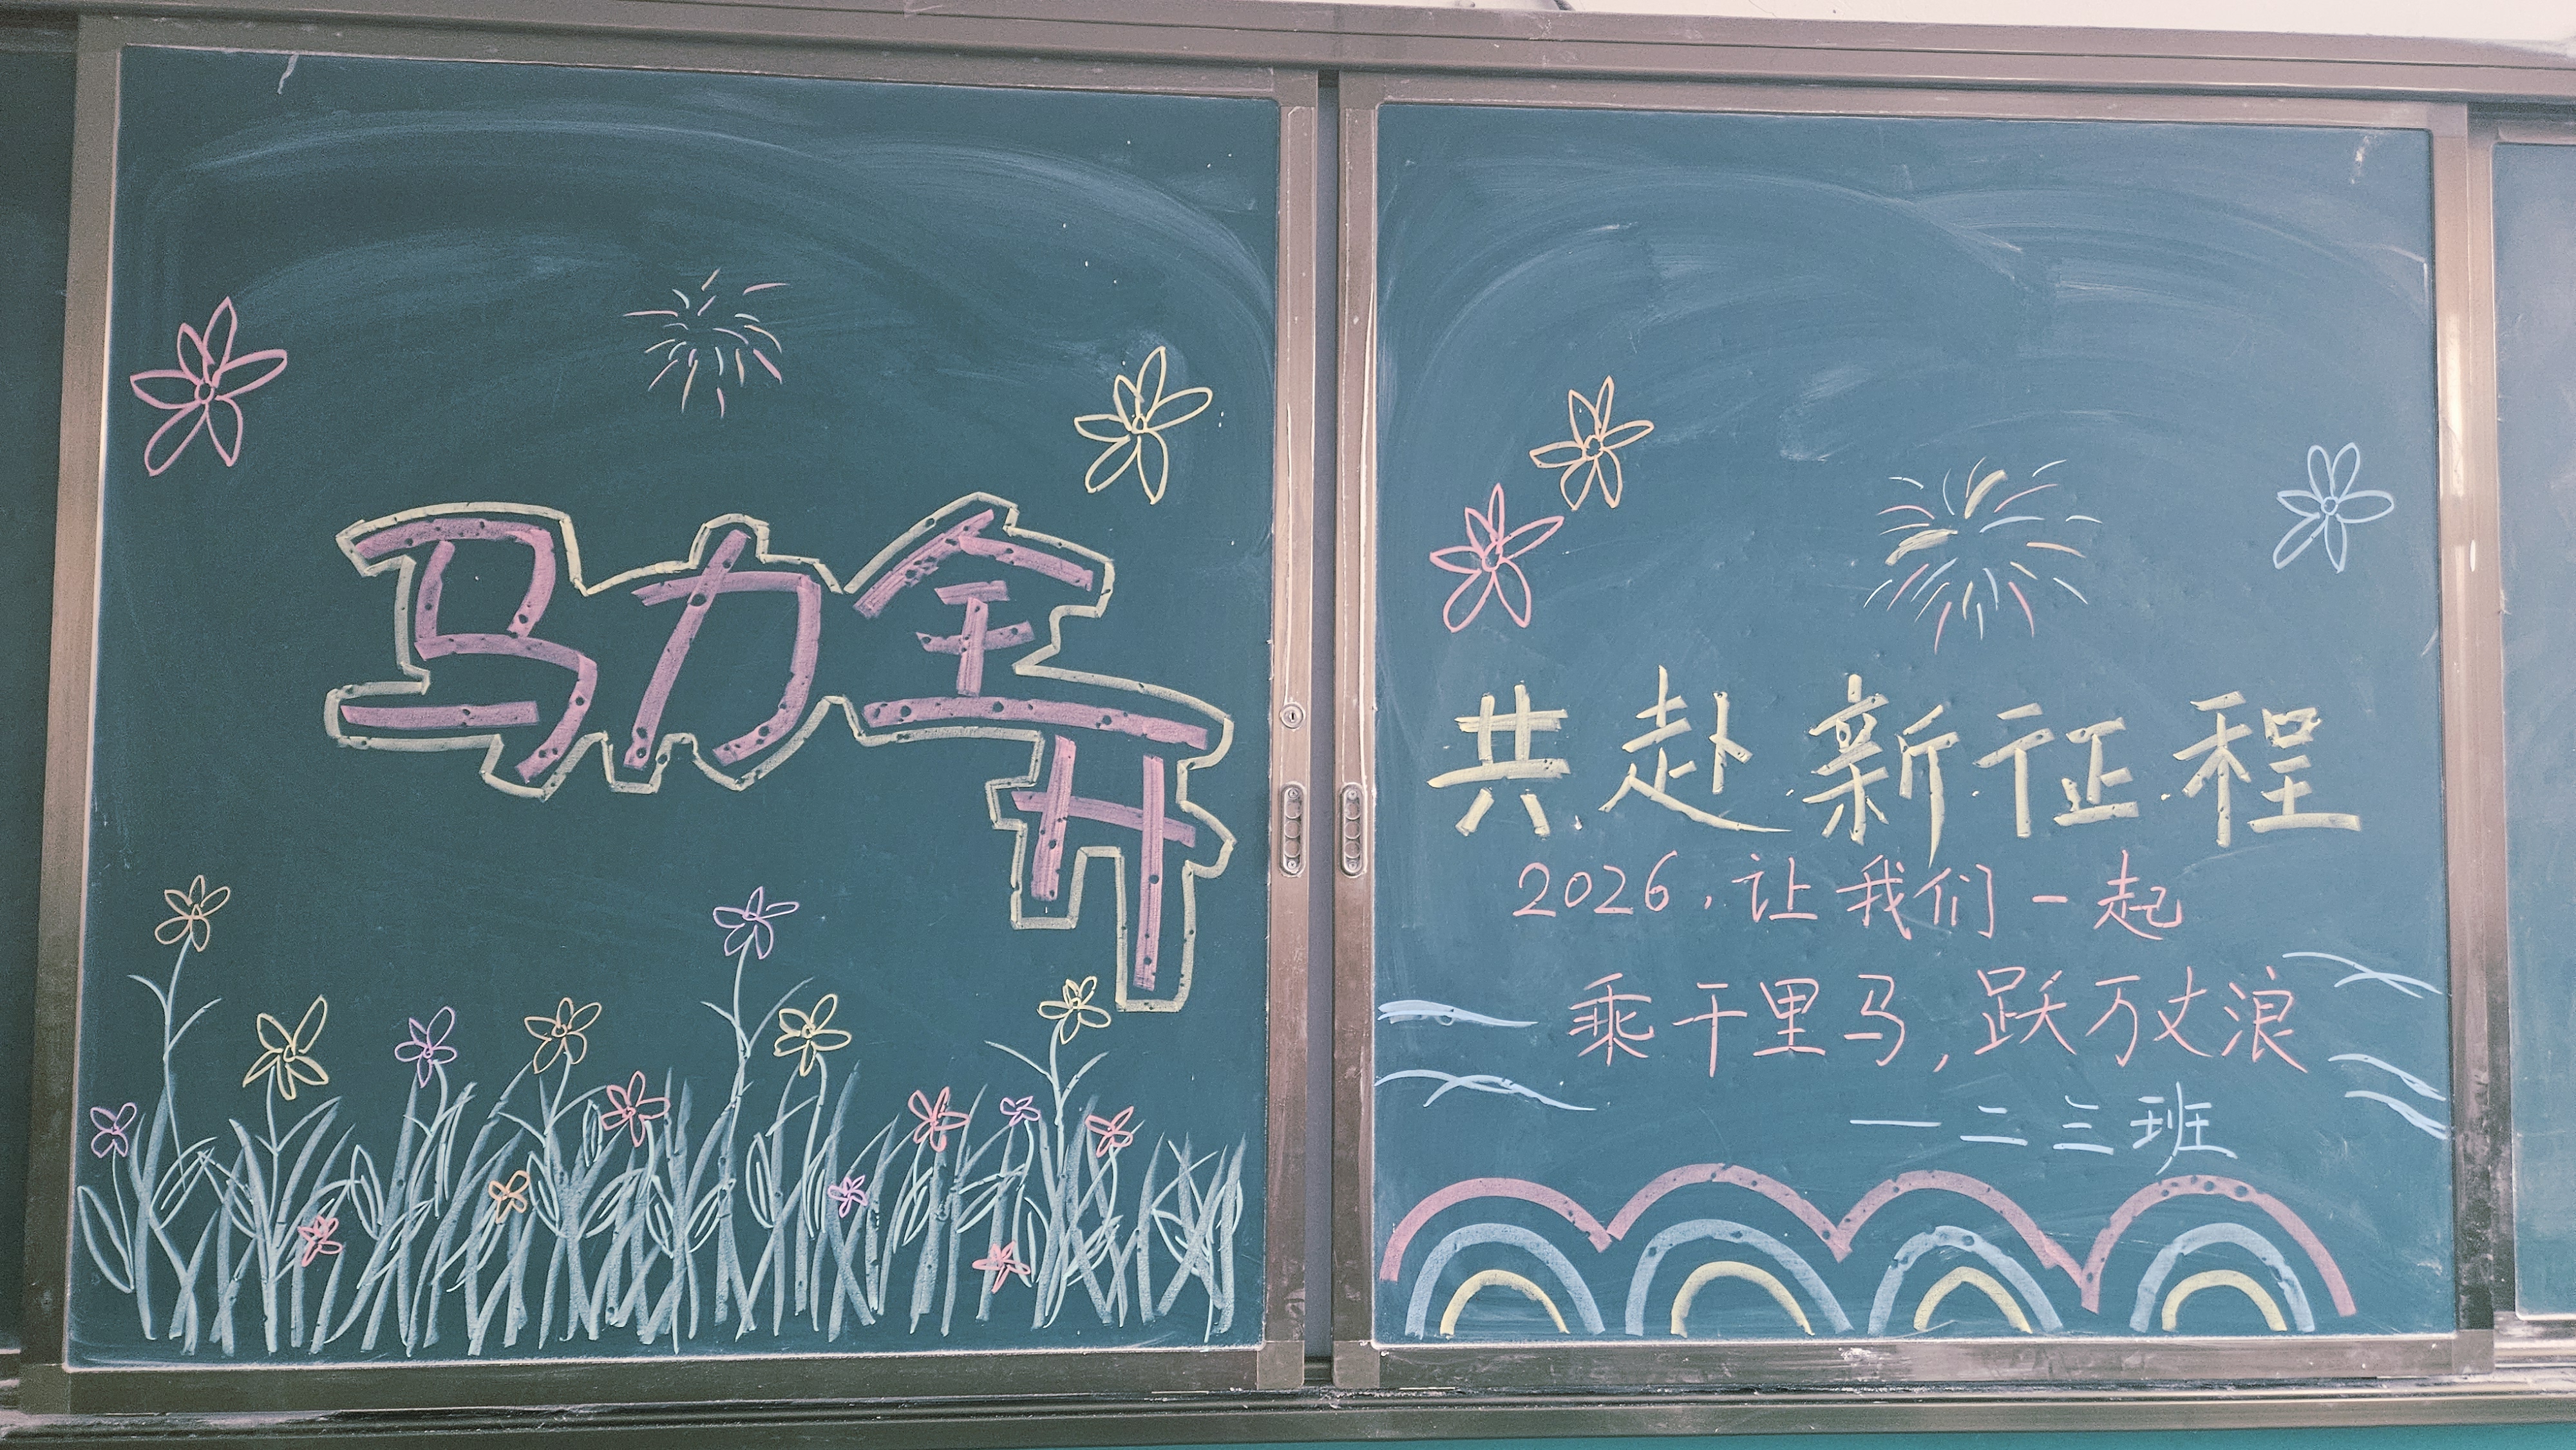 马力全开
共赴新征程
2026，让我们一起
乘千里马，跃万丈浪
—二三班